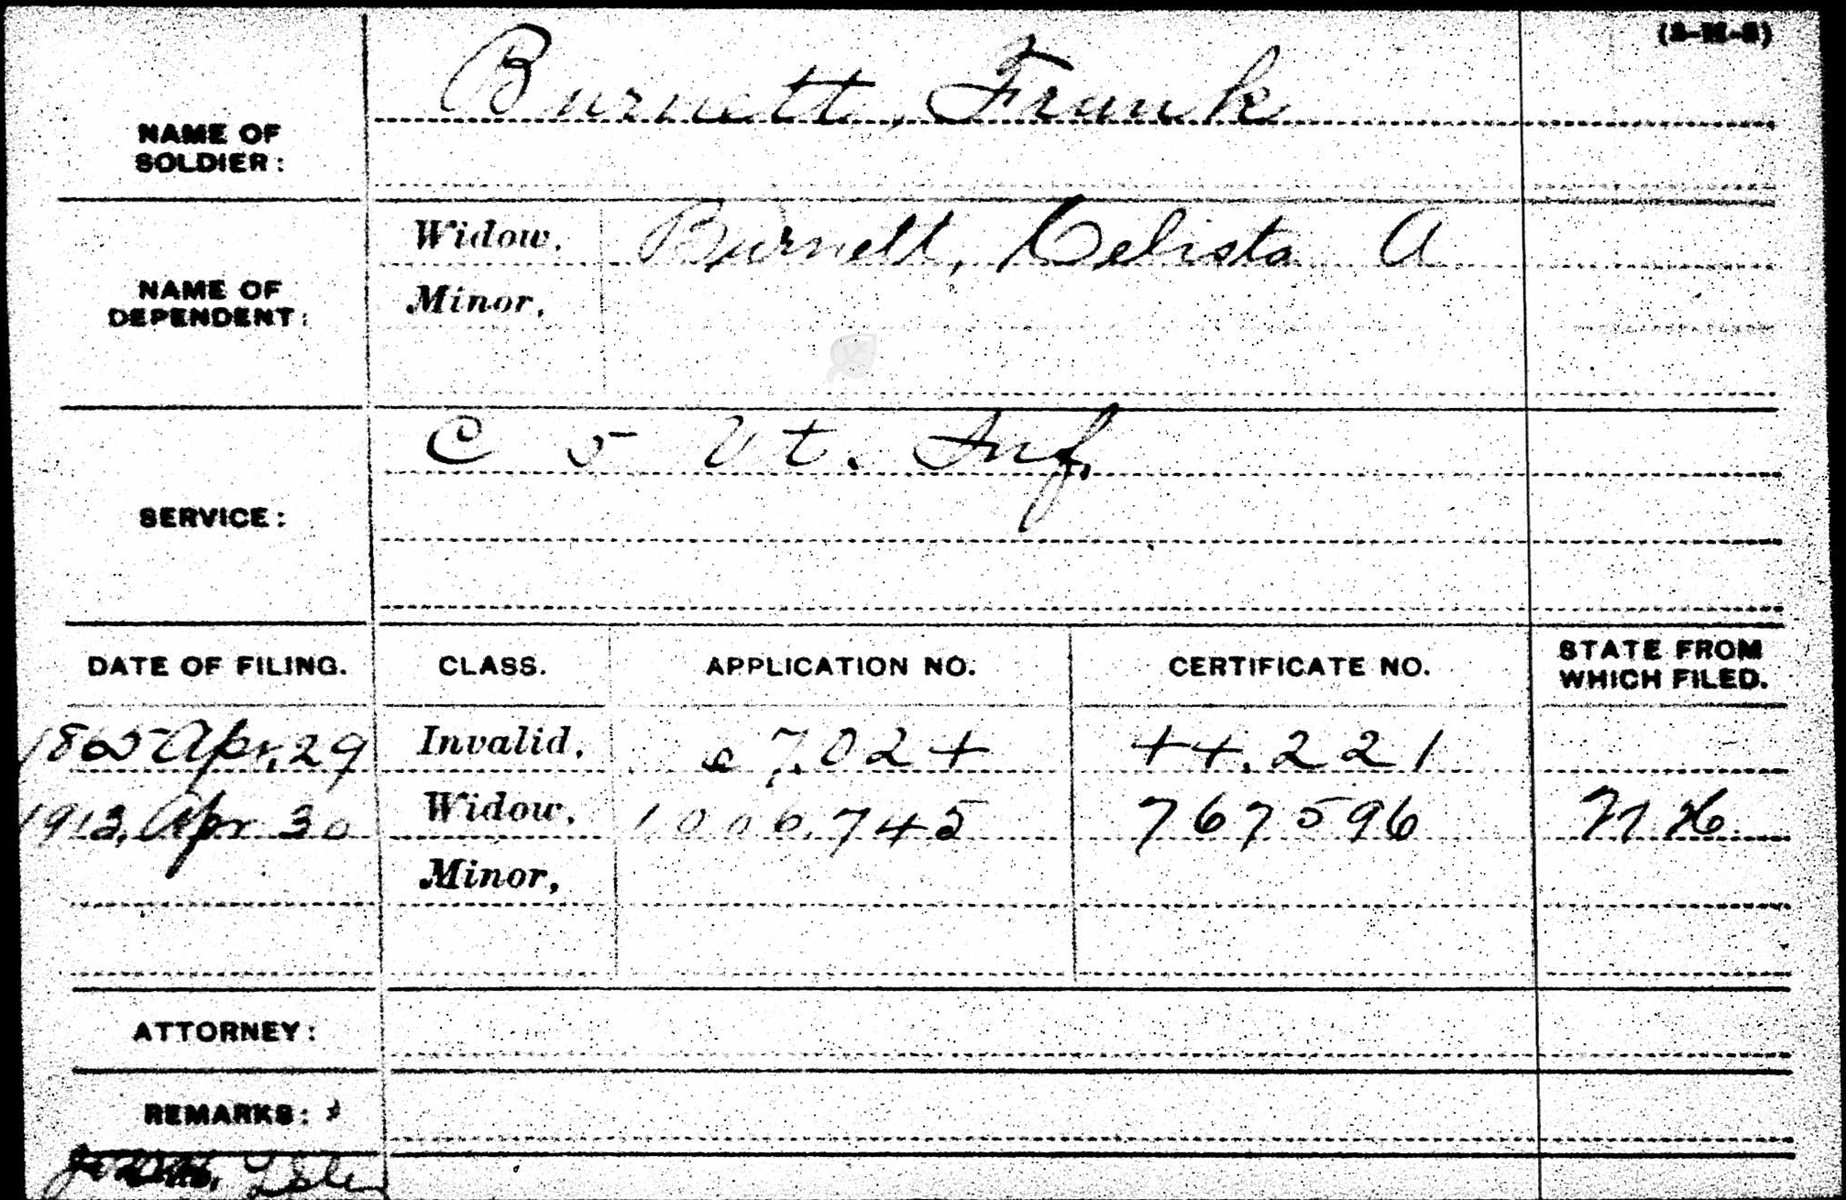 Burnett, Frank
NAME OF
SOLDIER:
Widow. Burnett, Celista A
Minor.
NAME OF
DEPENDENT:
C 5 Vt. Inf.
SERVICE:
DATE OF FILING. CLASS. APPLICATION NO. CERTIFICATE NO. STATE FROM WHICH FILED.
1865 Apr. 29 Invalid, 67.024 44.221
1913, Apr 30 Widow, 1006.745 767596 N H
Minor,
ATTORNEY:
REMARKS: